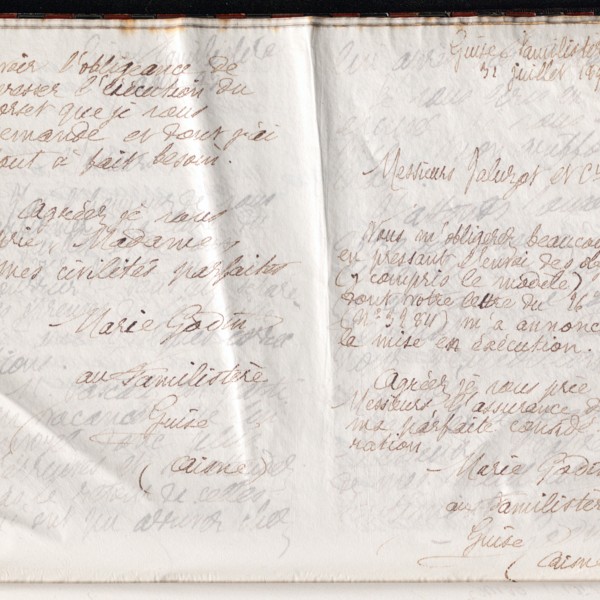 avoir l'obligeance de
presser l'exécution du
corset que je vous
demande et dont j'ai
tout à fait besoin.
Agréez je vous
prie, Madame,
mes civilités parfaites
Marie Godin
au Familistère
Guise
(Aisne)
Guise Familistère
31 juillet 189
Messieurs Jaluzot et Cie
Vous m'obligerez beaucou
en pressant l'envoi des ob
(y compris le modèle)
dont votre lettre du 26
(Nº 3984) m'a annonc
la mise en exécution.
Agréez je vous prie
Messieurs l'assurance de
ma parfaite considé
ration
Marie Godin
au Familistère
Guise
(Aisne